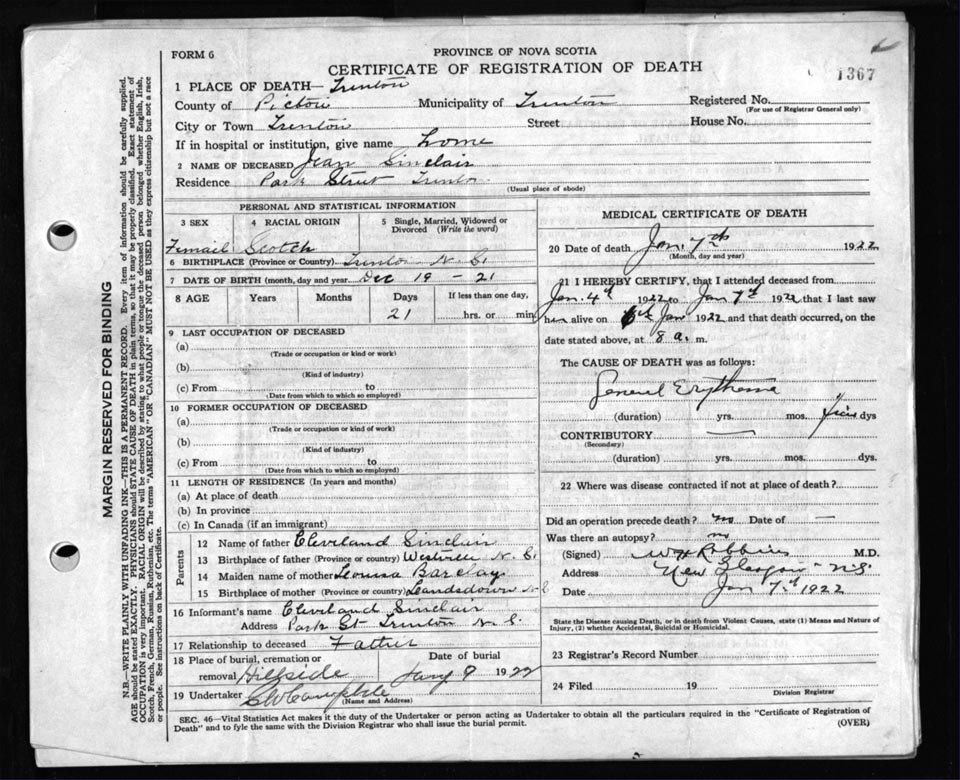 FORM 6
PROVINCE OF NOVA SCOTIA
CERTIFICATE OF REGISTRATION OF DEATH
1367
1 PLACE OF DEATH— Trenton
County of Pictou Municipality of Trenton Registered No.
(For use of Registrar General only)
City or Town Trenton Street House No.
If in hospital or institution, give name home
2 NAME OF DECEASED Jean Sinclair
Residence Park Street Trenton
(Usual place of abode)
PERSONAL AND STATISTICAL INFORMATION
3 SEX 4 RACIAL ORIGIN 5 Single, Married, Widowed or Divorced (Write the word)
Femail Scotch
6 BIRTHPLACE (Province or Country) Trenton N. S.
7 DATE OF BIRTH (month, day and year) Dec 19 - 21
8 AGE Years Months Days If less than one day,
21 hrs. or min.
9 LAST OCCUPATION OF DECEASED
(a)
(Trade or occupation or kind or work)
(b)
(Kind of industry)
(c) From to
(Date from which to which so employed)
10 FORMER OCCUPATION OF DECEASED
(a)
(Trade or occupation or kind of work)
(b)
(Kind of industry)
(c) From to
(Date from which to which so employed)
11 LENGTH OF RESIDENCE (In years and months)
(a) At place of death
(b) In province
(c) In Canada (if an immigrant)
Parents
12 Name of father Cleveland Sinclair
13 Birthplace of father (Province or country) Westville N. S.
14 Maiden name of mother Louisa Barclay
15 Birthplace of mother (Province or country) Landsdown N. S
16 Informant's name Cleveland Sinclair
Address Park St Trenton N. S.
17 Relationship to deceased Father
18 Place of burial, cremation or removal Hillside Date of burial Jany 9 1922
19 Undertaker
(Name and Address)
MEDICAL CERTIFICATE OF DEATH
20 Date of death Jan. 7th 1922
(Month, day and year)
21 I HEREBY CERTIFY, that I attended deceased from
Jan. 4th 1922 to Jan 7th 1922 that I last saw
her alive on 6th Jan 1922 and that death occurred, on the
date stated above, at 8 a. m.
The CAUSE OF DEATH was as follows:
General Erythema
(duration) yrs. mos. five dys
CONTRIBUTORY —
(Secondary)
(duration) yrs. mos. dys.
22 Where was disease contracted if not at place of death?
Did an operation precede death? no Date of —
Was there an autopsy? no
(Signed) W H Robbins M.D.
Address New Glasgow - N.S.
Date Jan 7th 1922
State the Disease causing Death, or in death from Violent Causes, state (1) Means and Nature of Injury, (2) whether Accidental, Suicidal or Homicidal.
23 Registrar's Record Number
24 Filed 19
Division Registrar
SEC. 46—Vital Statistics Act makes it the duty of the Undertaker or person acting as Undertaker to obtain all the particulars required in the "Certificate of Registration of
Death" and to fyle the same with the Division Registrar who shall issue the burial permit. (OVER)
MARGIN RESERVED FOR BINDING
N.B.—WRITE PLAINLY WITH UNFADING INK—THIS IS A PERMANENT RECORD. Every item of information should be carefully supplied.
AGE should be stated EXACTLY. PHYSICIANS should STATE CAUSE OF DEATH in plain terms, so that it may be properly classified. Exact statement of
OCCUPATION is very important. RACIAL ORIGIN will be described by stating to what people or tongue the deceased person belonged whether English, Irish,
Scotch, French, German, Russian, Ruthenian, etc. The terms "AMERICAN" OR "CANADIAN" MUST NOT BE USED as they express citizenship but not a race
or people. See instructions on back of Certificate.